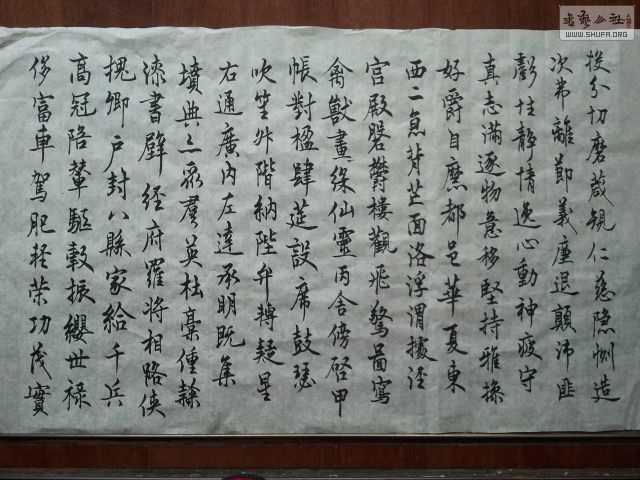 投分切磨箴規仁慈隱惻造
次弗離節義廉退顛沛匪
虧性靜情逸心動神疲守
真志滿逐物意移堅持雅操
好爵自縻都邑華夏東
西二京背芒面洛浮渭據涇
宮殿盤鬱樓觀飛驚圖寫
禽獸畫綵仙靈丙舍傍啓甲
帳對楹肆筵設席鼓瑟
吹笙升階納陛弁轉疑星
右通廣內左達承明既集
墳典亦聚群英杜稾鍾隸
漆書壁經府羅將相路俠
槐卿戶封八縣家給千兵
高冠陪輦驅轂振纓世祿
侈富車駕肥輕策功茂實
书艺公社
WWW.SHUFA.ORG